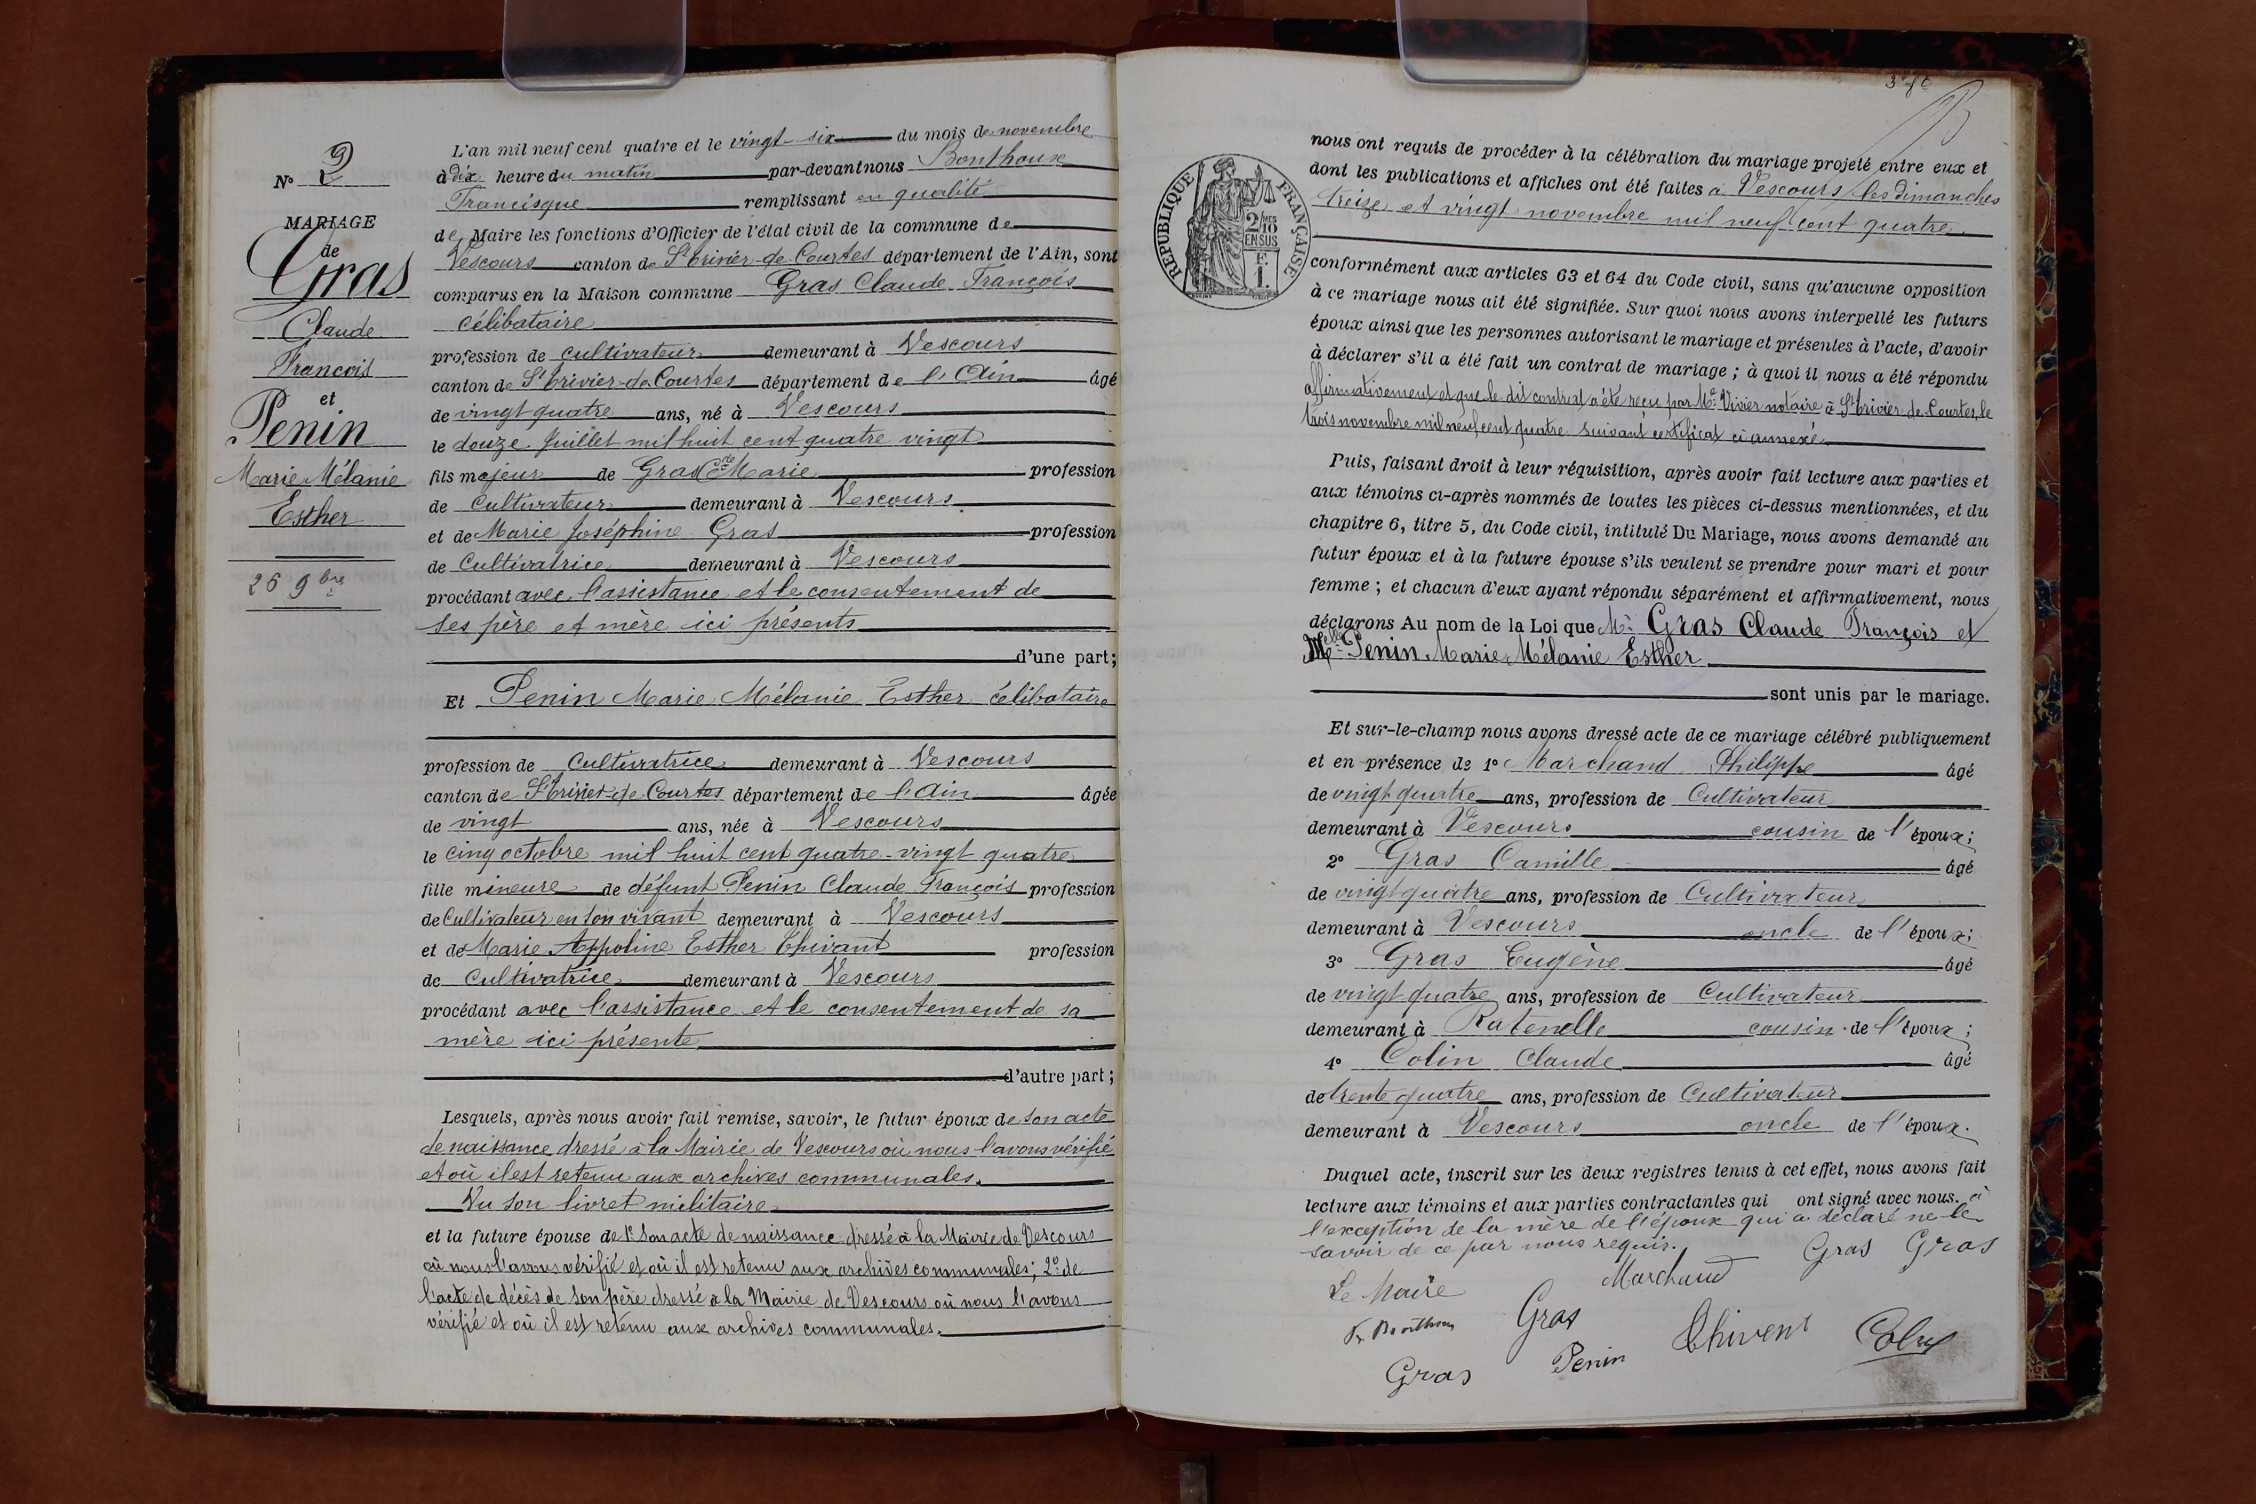 N° 2
MARIAGE
de
Gras
Claude
François
et
Penin
Marie Mélanie
Esther
26 9bre
L'an mil neuf cent quatre et le vingt-six du mois de novembre
à dix heure du matin par-devant nous Bonthoux
Francisque remplissant en qualité
de Maire les fonctions d'Officier de l'état civil de la commune de
Vescours canton de St Trivier-de-Courtes département de l'Ain, sont
comparus en la Maison commune Gras Claude François
célibataire
profession de cultivateur demeurant à Vescours
canton de St Trivier-de-Courtes département de l'Ain âgé
de vingt quatre ans, né à Vescours
le douze Juillet mil huit cent quatre vingt
fils majeur de Gras Marie profession
de Cultivateur demeurant à Vescours
et de Marie Joséphine Gras profession
de Cultivatrice demeurant à Vescours
procédant avec l'assistance et le consentement de
ses père et mère ici présents
d'une part;
Et Penin Marie Mélanie Esther célibataire
profession de Cultivatrice demeurant à Vescours
canton de St Trivier-de-Courtes département de l'Ain âgée
de vingt ans, née à Vescours
le cinq octobre mil huit cent quatre-vingt quatre
fille mineure de défunt Penin Claude François profession
de Cultivateur en son vivant demeurant à Vescours
et de Marie Appoline Esther Thivant profession
de Cultivatrice demeurant à Vescours
procédant avec l'assistance et le consentement de sa
mère ici présente
d'autre part;
Lesquels, après nous avoir fait remise, savoir, le futur époux de son acte
de naissance dressé à la Mairie de Vescours où nous l'avons vérifié
et où il est retenu aux archives communales.
Vu son livret militaire
et la future épouse de 1° son acte de naissance dressé à la Mairie de Vescours
où nous l'avons vérifié et où il est retenu aux archives communales; 2° de
l'acte de décès de son père dressé à la Mairie de Vescours où nous l'avons
vérifié et où il est retenu aux archives communales.
RÉPUBLIQUE FRANÇAISE
2/10 EN SUS
F. 1.
nous ont requis de procéder à la célébration du mariage projeté entre eux et
dont les publications et affiches ont été faites à Vescours les dimanches
treize et vingt novembre mil neuf cent quatre
conformément aux articles 63 et 64 du Code civil, sans qu'aucune opposition
à ce mariage nous ait été signifiée. Sur quoi nous avons interpellé les futurs
époux ainsi que les personnes autorisant le mariage et présentes à l'acte, d'avoir
à déclarer s'il a été fait un contrat de mariage ; à quoi il nous a été répondu
affirmativement et que le dit contrat a été reçu par Me Vivier notaire à St Trivier de Courtes, le
trois novembre mil neuf cent quatre suivant certificat ci annexé
Puis, faisant droit à leur réquisition, après avoir fait lecture aux parties et
aux témoins ci-après nommés de toutes les pièces ci-dessus mentionnées, et du
chapitre 6, titre 5, du Code civil, intitulé Du Mariage, nous avons demandé au
futur époux et à la future épouse s'ils veulent se prendre pour mari et pour
femme ; et chacun d'eux ayant répondu séparément et affirmativement, nous
déclarons Au nom de la Loi que Mr Gras Claude François et
Melle Penin Marie Mélanie Esther
sont unis par le mariage.
Et sur-le-champ nous avons dressé acte de ce mariage célébré publiquement
et en présence de 1° Marchand Philippe âgé
de vingt quatre ans, profession de Cultivateur
demeurant à Vescours cousin de l'époux;
2° Gras Camille âgé
de vingt quatre ans, profession de Cultivateur
demeurant à Vescours oncle de l'époux;
3° Gras Eugène âgé
de vingt quatre ans, profession de Cultivateur
demeurant à Ratenelle cousin de l'époux;
4° Colin Claude âgé
de trente quatre ans, profession de Cultivateur
demeurant à Vescours oncle de l'époux.
Duquel acte, inscrit sur les deux registres tenus à cet effet, nous avons fait
lecture aux témoins et aux parties contractantes qui ont signé avec nous. à
l'exception de la mère de l'époux qui a déclaré ne le
savoir de ce par nous requis.
Gras Gras
Marchand
Le Maire
Fr Bonthoux
Gras
Thivent
Colin
Gras
Penin